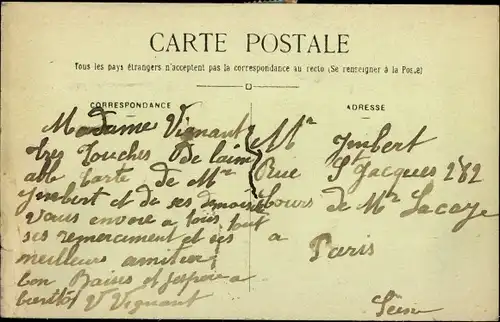 CARTE POSTALE
Tous les pays étrangers n'acceptent pas la correspondance au recto (Se renseigner à la Poste)
CORRESPONDANCE
Madame Vignant
tres Touches de l'aim
able Carte de Mr
Ymbert et de ses demoiselle
Vous envoie a tous tout
ses remerciment et ses
meilleur amitier
bon Baises et jespere a
bientôt V Vignant
ADRESSE
Mr Ymbert
Rue St Jacques 282
Cours de Mr Lacaze
a Paris
Seine